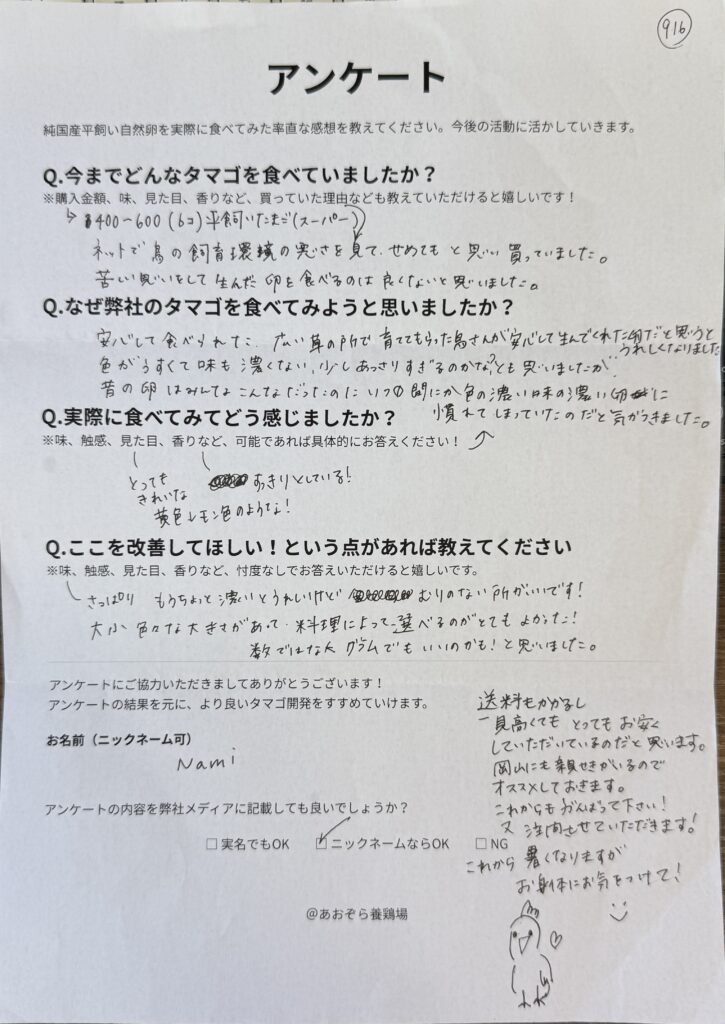 916
アンケート
純国産平飼い自然卵を実際に食べてみた率直な感想を教えてください。今後の活動に活かしていきます。
Q.今までどんなタマゴを食べていましたか？
※購入金額、味、見た目、香りなど、買っていた理由なども教えていただけると嬉しいです！
400〜600 (6コ) 平飼いたまご(スーパー)
ネットで鳥の飼育環境の悪さを見て、せめてもと思い買っていました。
苦しい思いをして生んだ卵を食べるのは良くないと思いました。
Q.なぜ弊社のタマゴを食べてみようと思いましたか？
安心して食べられた、広い草の所で育ててもらった鳥さんが安心して生んでくれた卵だと思うと
うれしくなりました
色がうすくて味も濃くない、少しあっさりすぎるのかな?とも思いましたが
昔の卵はみんなこんなだったのにいつの間にか色の濃い味の濃い卵に
慣れてしまっていたのだと気がつきました。
Q.実際に食べてみてどう感じましたか？
※味、触感、見た目、香りなど、可能であれば具体的にお答えください！
とっても
きれいな
黄色レモン色のような!
すっきりとしている!
Q.ここを改善してほしい！という点があれば教えてください
※味、触感、見た目、香りなど、忖度なしでお答えいただけると嬉しいです。
さっぱり もうちょっと濃いとうれしいけど むりのない所がいいです!
大小色々な大きさがあって、料理によって選べるのがとてもよかった!
数ではなくグラムでもいいのかも!と思いました。
アンケートにご協力いただきましてありがとうございます！
アンケートの結果を元に、より良いタマゴ開発をすすめていけます。
お名前（ニックネーム可）
Nami
アンケートの内容を弊社メディアに記載しても良いでしょうか？
□ 実名でもOK □ ニックネームならOK □ NG
送料もかかるし
一見高くてもとってもお安く
していただいているのだと思います。
岡山にも親せきがいるので
オススメしておきます。
これからもがんばって下さい!
又 注文させていただきます!
これから暑くなりますが
お身体にお気をつけて!
@あおぞら養鶏場